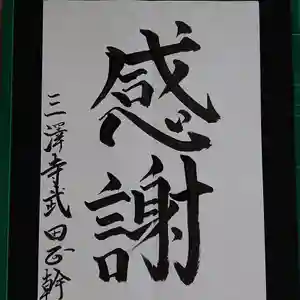 感謝
三澤寺武田正幹